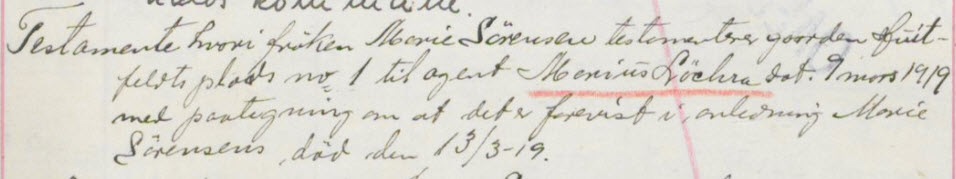 Testamente hvori frøken Marie Sörensen testamenterer gaarden Huit-
feldts plads no 1 til agent Marius Löchra dat. 9 mars 1919
med paategning om at det er forevist i anledning Marie
Sörensens död den 13/3-19.